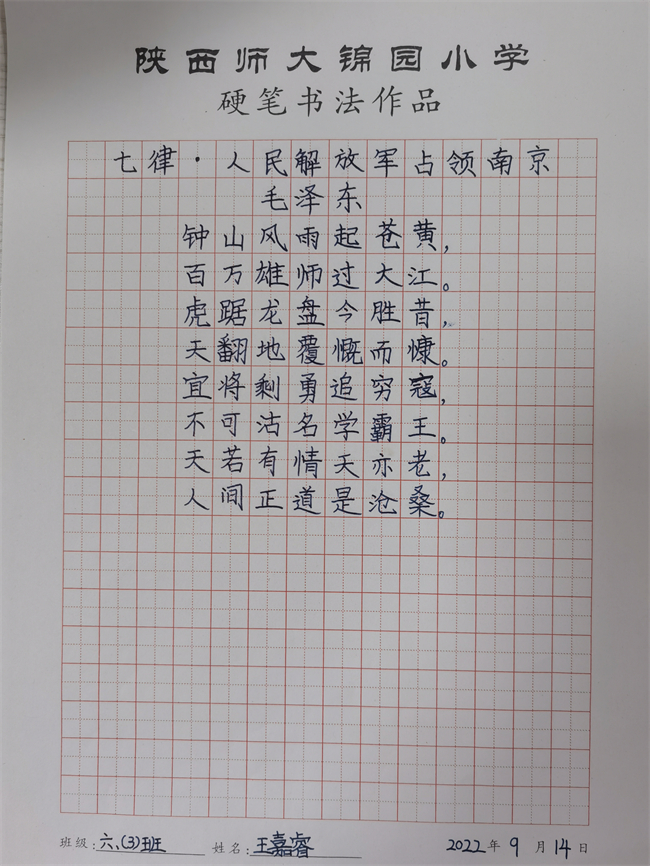 陕西师大锦园小学
硬笔书法作品
七律·人民解放军占领南京
毛泽东
钟山风雨起苍黄，
百万雄师过大江。
虎踞龙盘今胜昔，
天翻地覆慨而慷。
宜将剩勇追穷寇，
不可沽名学霸王。
天若有情天亦老，
人间正道是沧桑。
班级：六、(3)班 姓名：王嘉睿 2022年9月14日